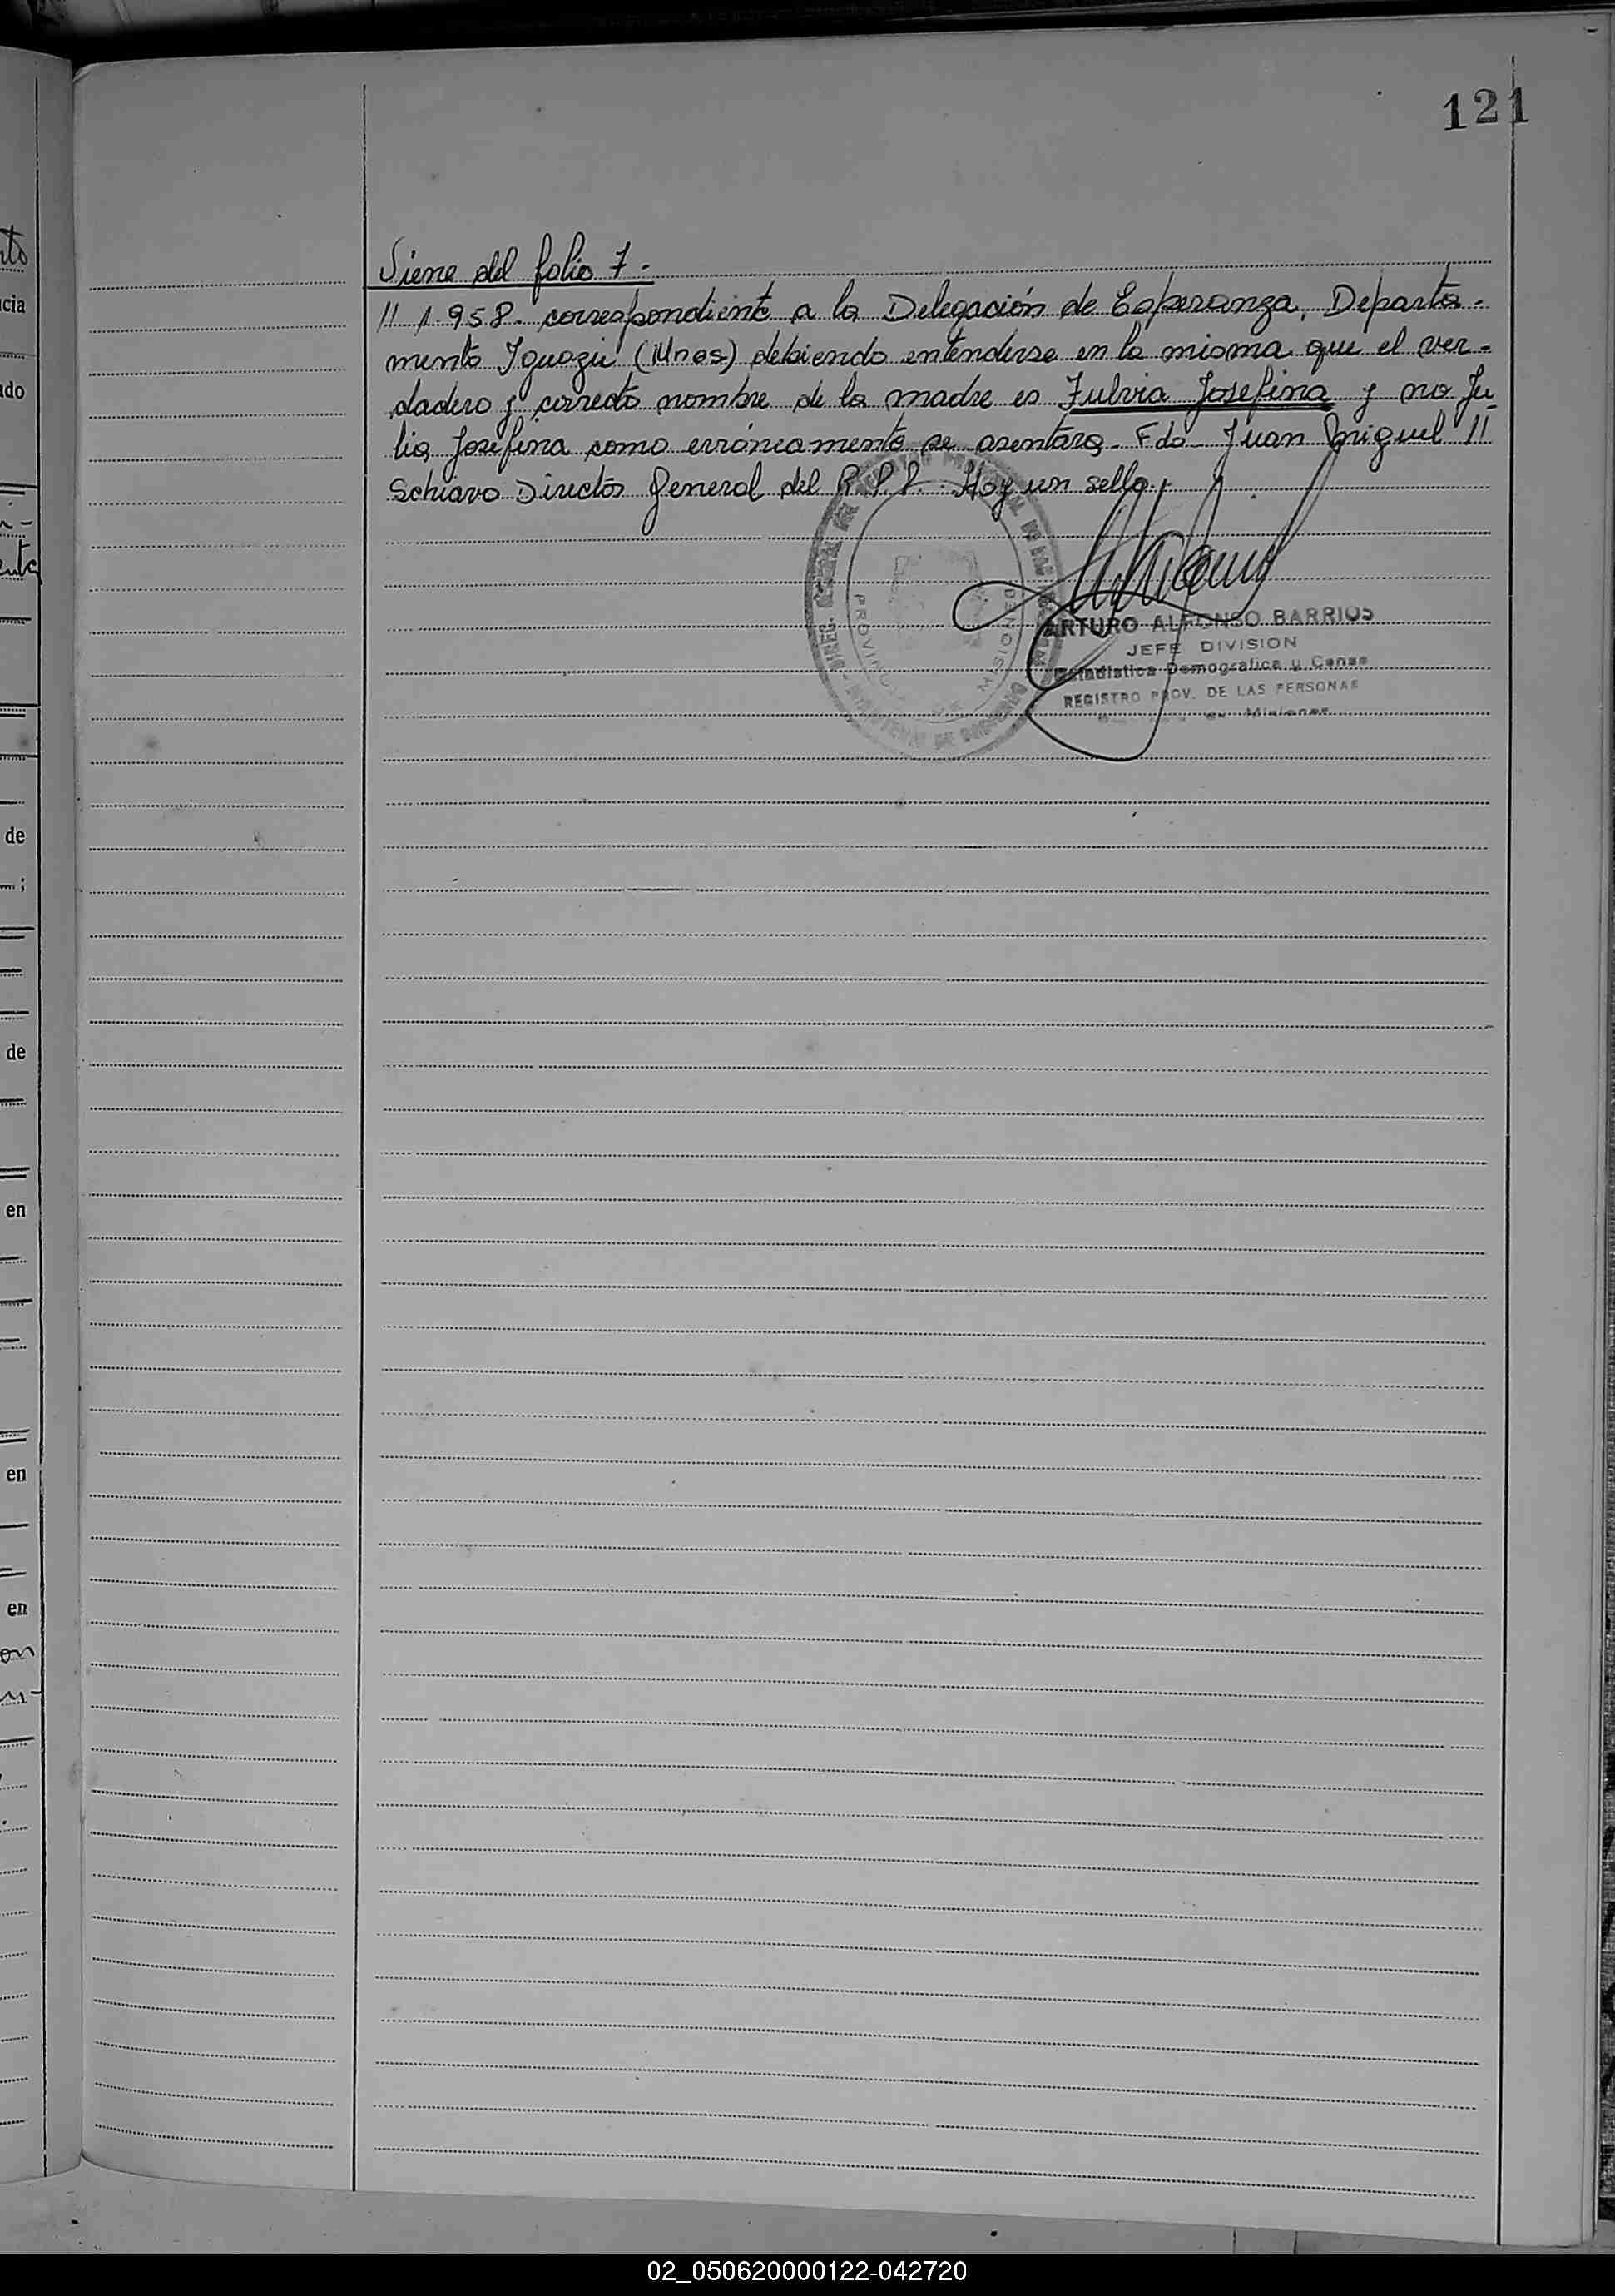 121
Viene del folio 7.-
// 1.958. correspondiente a la Delegación de Esperanza, Departa-
mento Iguazú (Mnes) debiendo entenderse en la misma que el ver-
dadero y correcto nombre de la madre es Fulvia Josefina y no Ju-
lia Josefina como erróneamente se asentara. Fdo. Juan Miguel //
Schiavo Director General del R.P.P. Hay un sello.
PROVINCIA DE MISIONES
ARTURO ALFONSO BARRIOS
JEFE DIVISION
Estadistica Demografica y Censo
REGISTRO PROV. DE LAS PERSONAS
Misiones
cia
ado
de
de
en
en
en
02_050620000122-042720